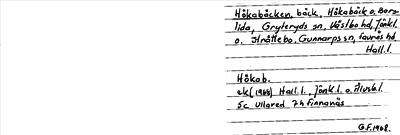 Hökabäcken, bäck, Hökabäck o. Borg
lida, Gryteryds sn, Västbo hd, Jönk.l.
o. Stråttebo, Gunnarps sn, Faurås hd
Hall.l.
Hökab.
ek (1968) Hall.l., Jönk.l. o. Älvsb.l.
5c Ullared 7h Finnanäs
G.F. 1968.